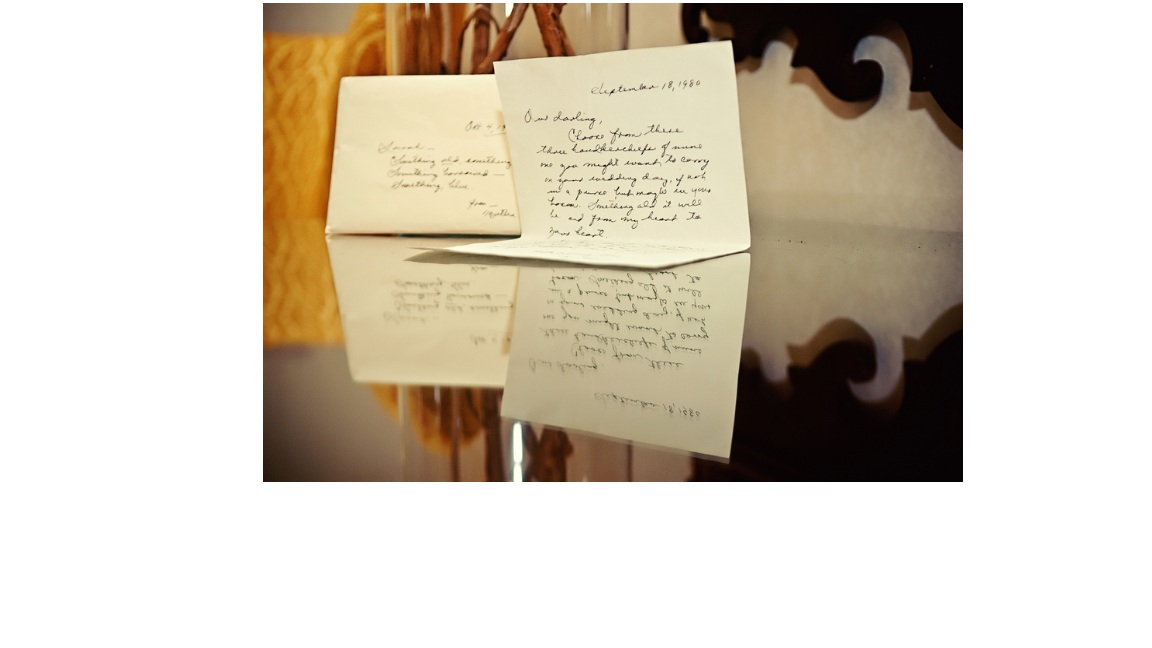 Oct 4, 19
Sarah -
Something old something
Something borrowed -
Something blue
from -
Mother
September 18, 1980
Our darling,
Choose from these
three handkerchiefs of mine
one you might want to carry
on your wedding day, if not
in a purse but maybe in your
bosom. Something old it will
be and from my heart to
your heart